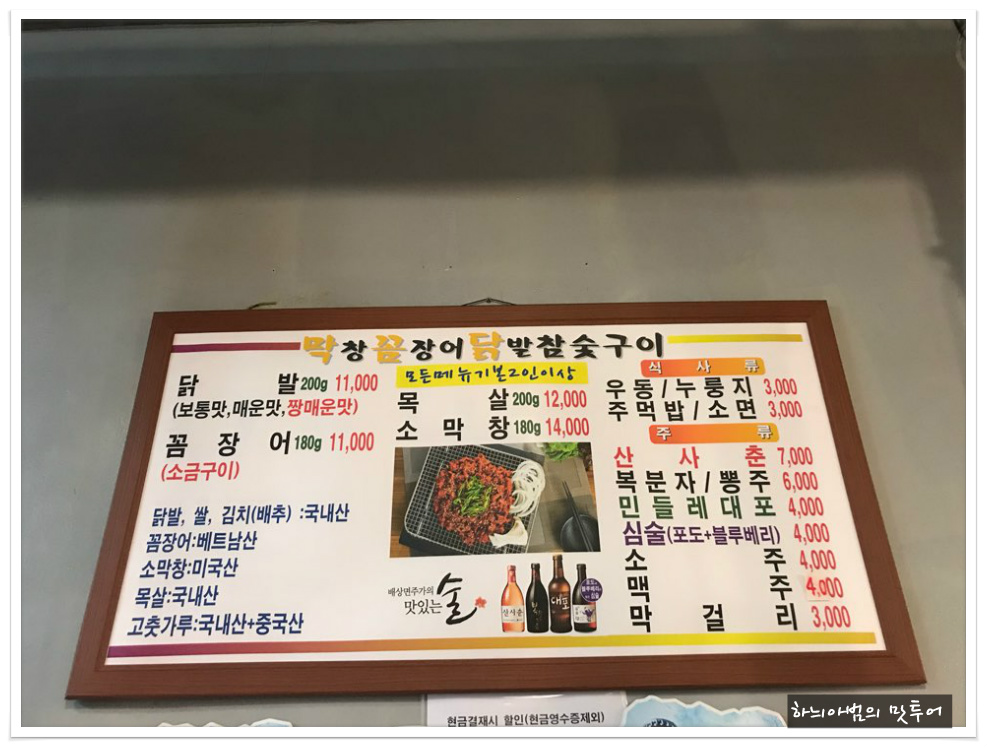 막창꼼장어닭발참숯구이
닭발 200g 11,000
(보통맛,매운맛,짱매운맛)
꼼장어 180g 11,000
(소금구이)
닭발, 쌀, 김치(배추) :국내산
꼼장어:베트남산
소막창:미국산
목살:국내산
고춧가루:국내산+중국산
모든메뉴기본2인이상
목살 200g 12,000
소막창 180g 14,000
배상면주가의
맛있는 술
산사춘
대포
식사류
우동/누룽지 3,000
주먹밥/소면 3,000
주류
산사춘 7,000
복분자/뽕주 6,000
민들레대포 4,000
심술(포도+블루베리) 4,000
소주 4,000
맥주 4,000
막걸리 3,000
현금결재시 할인(현금영수증제외)
하늬아범의 맛투어